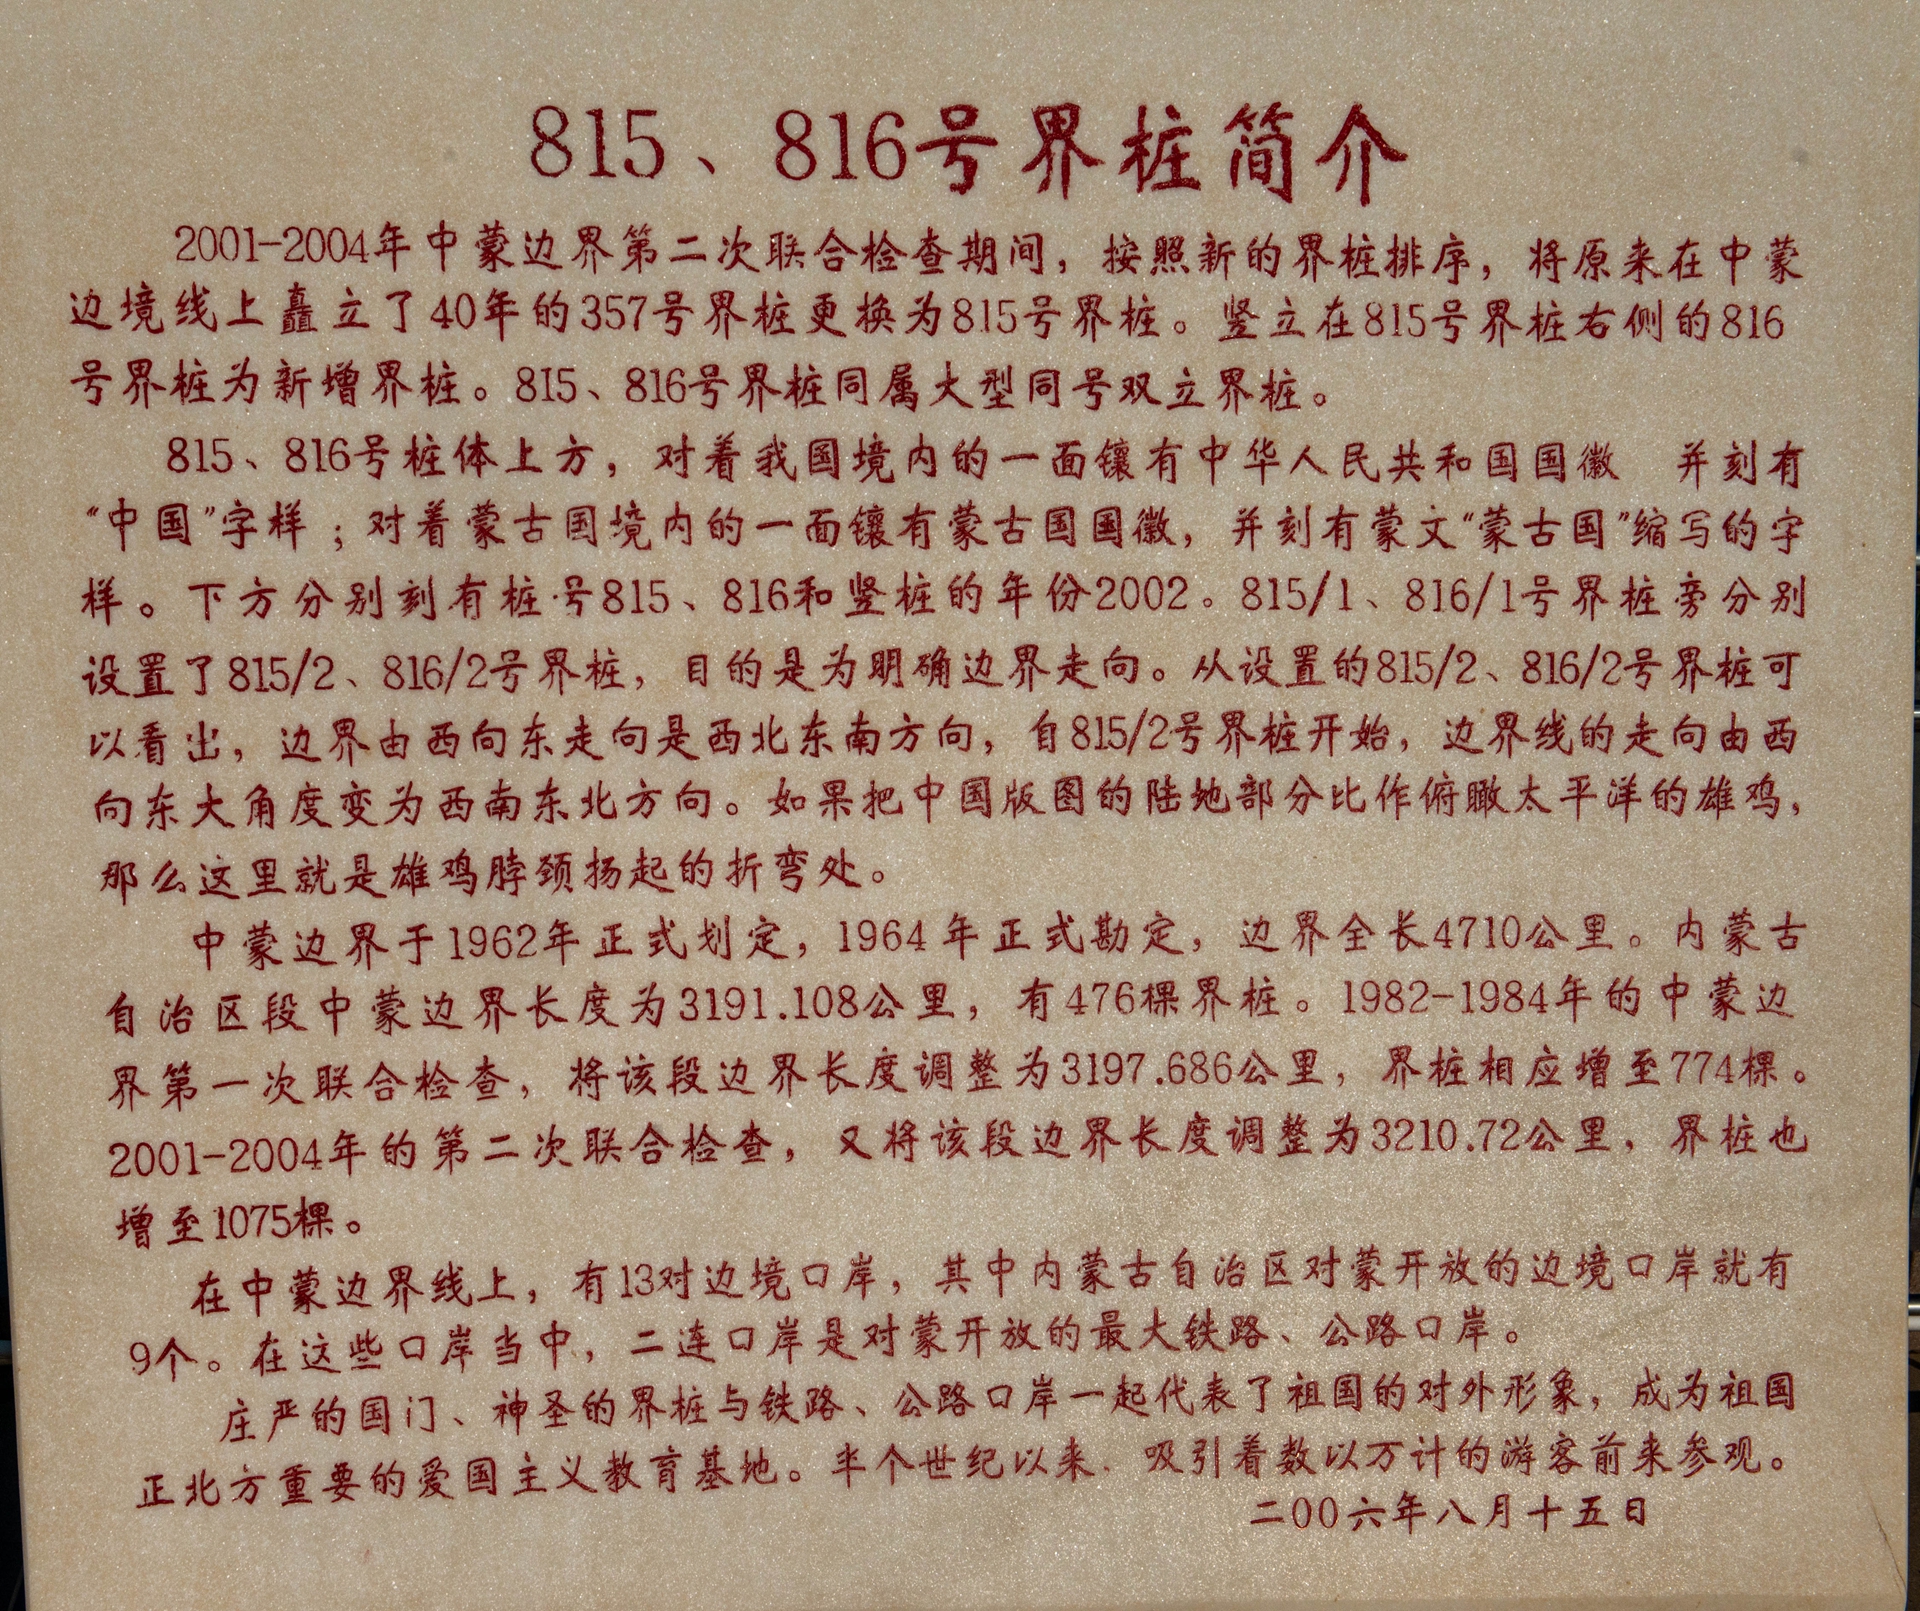 815、816号界桩简介
2001-2004年中蒙边界第二次联合检查期间，按照新的界桩排序，将原来在中蒙
边境线上矗立了40年的357号界桩更换为815号界桩。竖立在815号界桩右侧的816
号界桩为新增界桩。815、816号界桩同属大型同号双立界桩。
815、816号桩体上方，对着我国境内的一面镶有中华人民共和国国徽 并刻有
“中国”字样；对着蒙古国境内的一面镶有蒙古国国徽，并刻有蒙文“蒙古国”缩写的字
样。下方分别刻有桩号815、816和竖桩的年份2002。815/1、816/1号界桩旁分别
设置了815/2、816/2号界桩，目的是为明确边界走向。从设置的815/2、816/2号界桩可
以看出，边界由西向东走向是西北东南方向，自815/2号界桩开始，边界线的走向由西
向东大角度变为西南东北方向。如果把中国版图的陆地部分比作俯瞰太平洋的雄鸡，
那么这里就是雄鸡脖颈扬起的折弯处。
中蒙边界于1962年正式划定，1964年正式勘定，边界全长4710公里。内蒙古
自治区段中蒙边界长度为3191.108公里，有476棵界桩。1982-1984年的中蒙边
界第一次联合检查，将该段边界长度调整为3197.686公里，界桩相应增至774棵。
2001-2004年的第二次联合检查，又将该段边界长度调整为3210.72公里，界桩也
增至1075棵。
在中蒙边界线上，有13对边境口岸，其中内蒙古自治区对蒙开放的边境口岸就有
9个。在这些口岸当中，二连口岸是对蒙开放的最大铁路、公路口岸。
庄严的国门、神圣的界桩与铁路、公路口岸一起代表了祖国的对外形象，成为祖国
正北方重要的爱国主义教育基地。半个世纪以来．吸引着数以万计的游客前来参观。
二00六年八月十五日